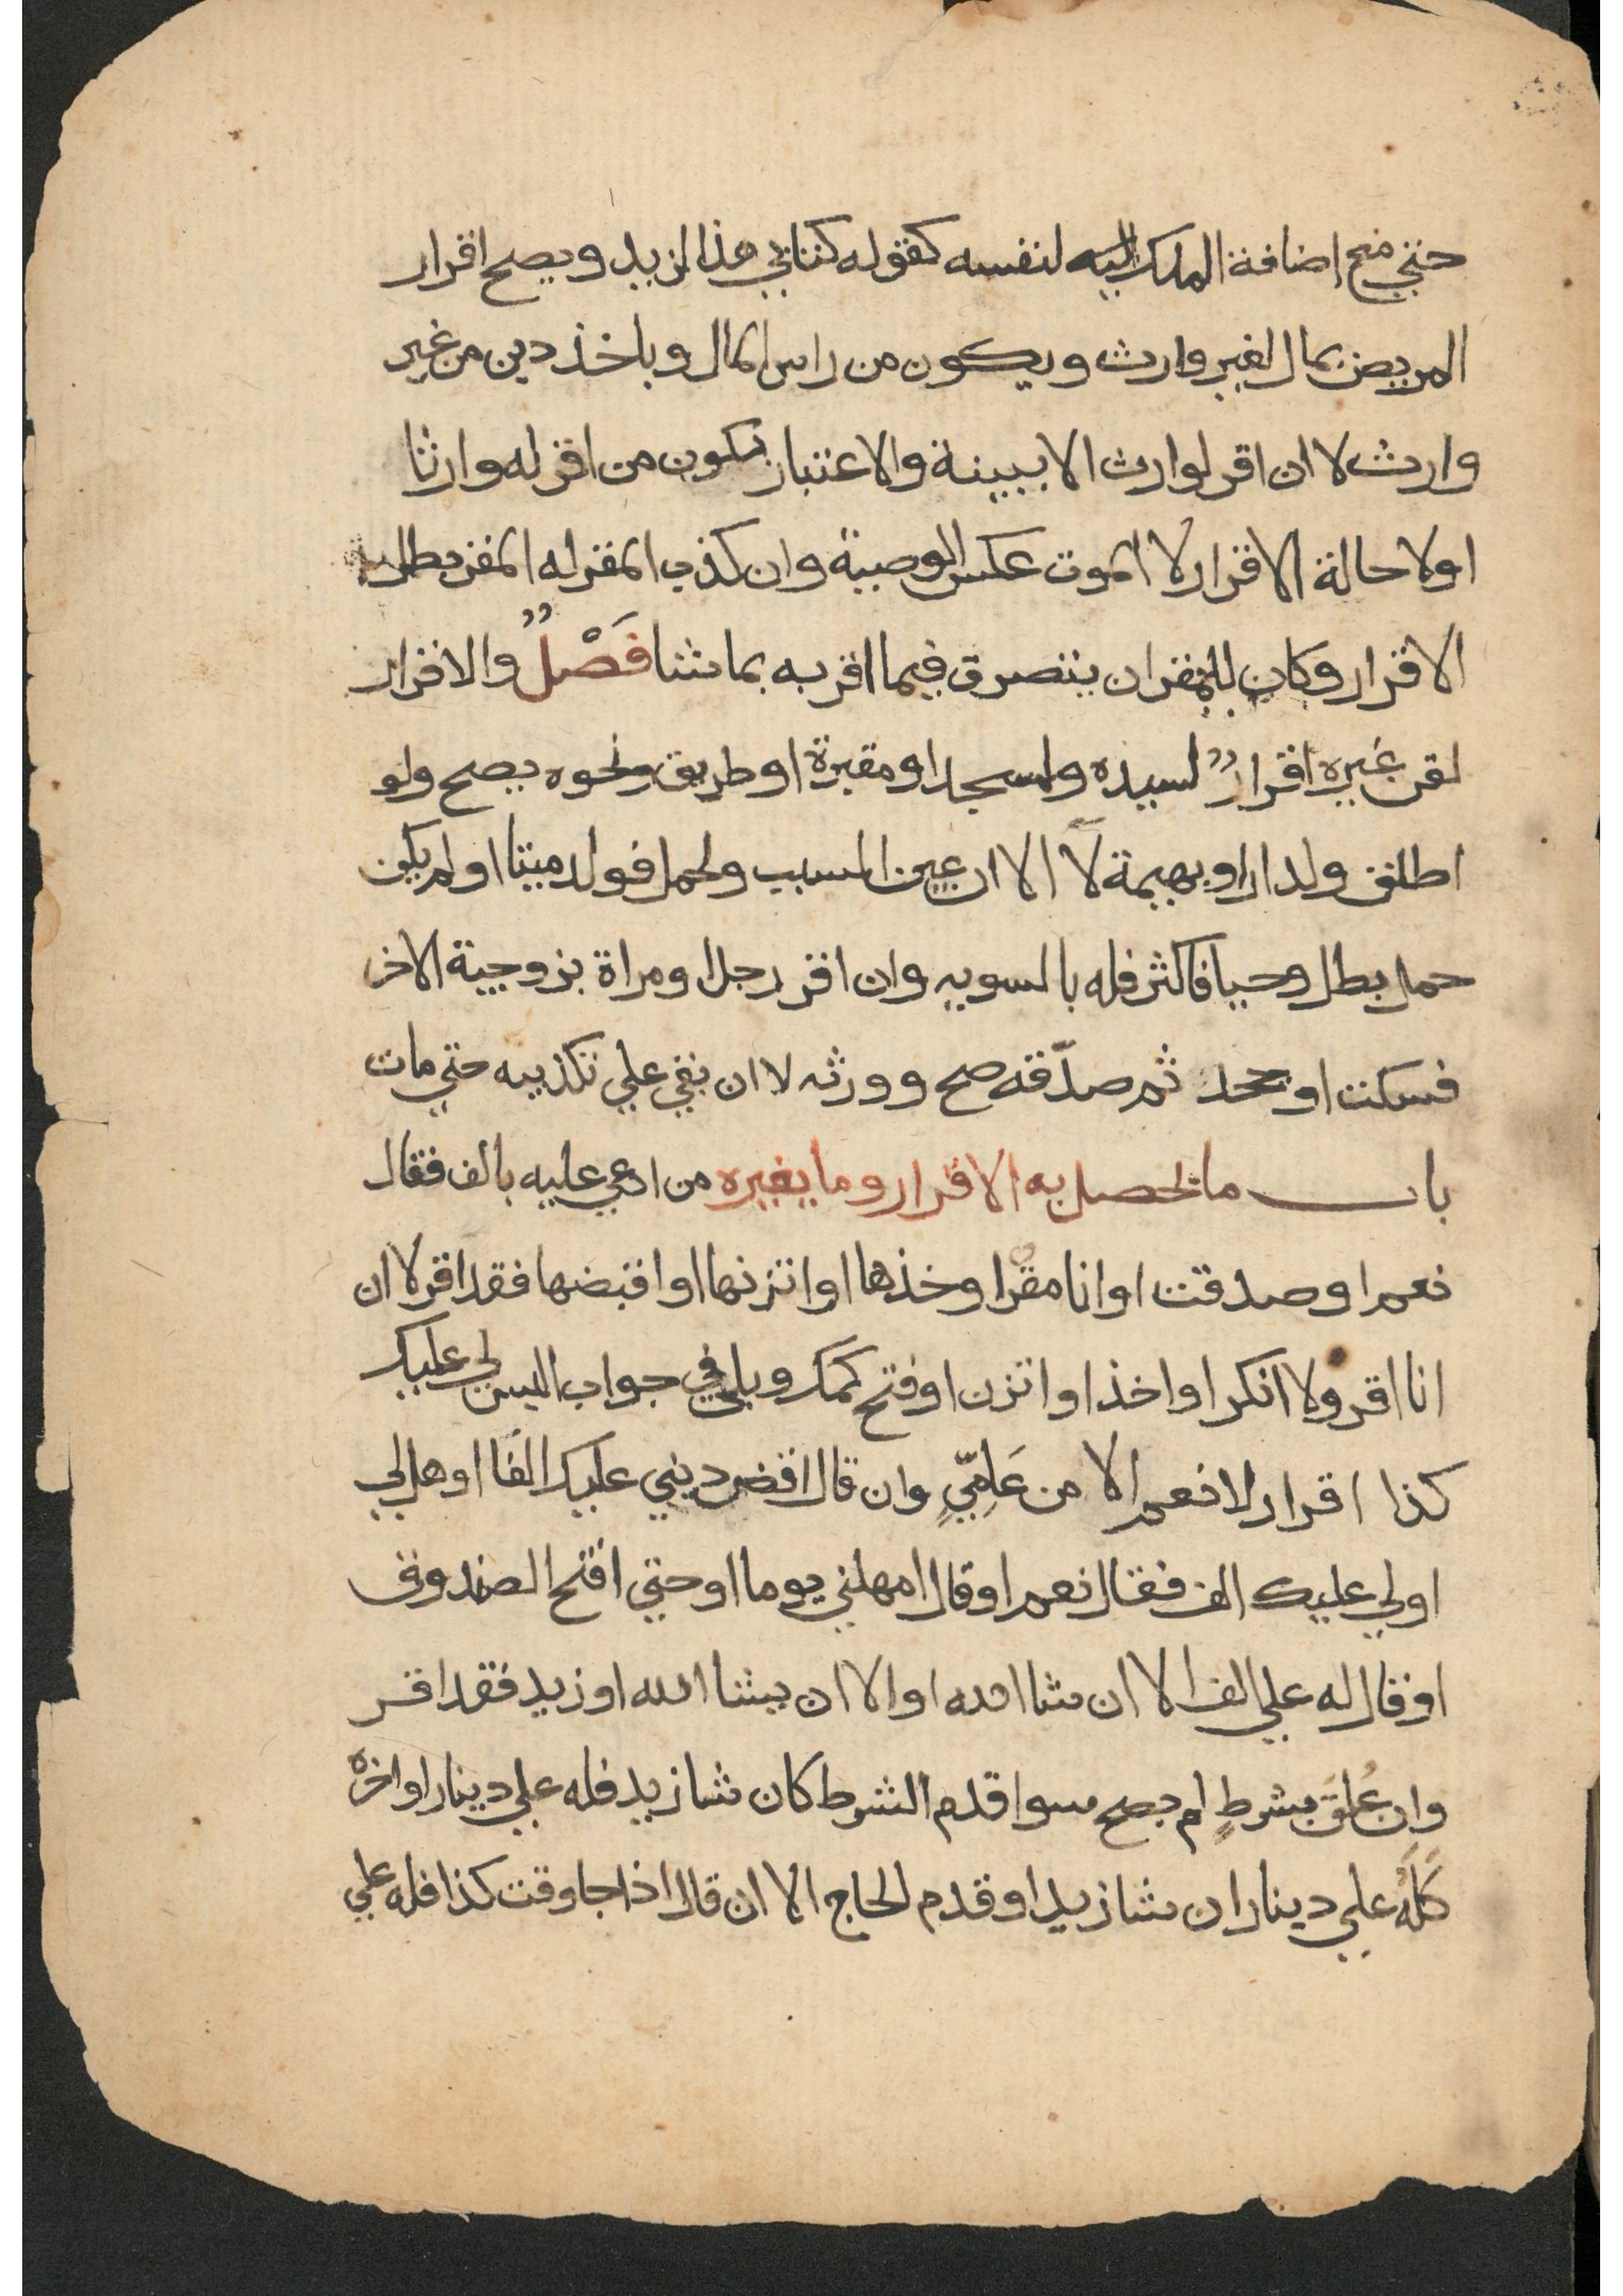 حتي مع اضافة الملك اليه لنفسه كقوله كتابي هذا لزيد ويصح اقرار
المريض بمال لغير وارث ويكون من راس المال وباخذ دين من غير
وارث لا ان اقر لوارث الا ببينة والاعتبار بكون من اقر له وارثا
اولا حالة الاقرار لا الموت عكس الوصية وان كذب المقر له المقر بطل
الاقرار وكان للمقر ان يتصرف فيما اقر به بما شا فَصْلٌ والاقرار
لقن غيره اقرارٌ لسيده ولمسجد او مقبرة او طريق ونحوه يصح ولو
اطلق ولدار او بهيمة لا الا ان عين السبب ولحمل فولد ميتا او لم يكن
حمل بطل وحيا فاكثر فله بالسويه وان اقر رجل او مراة بزوجية الاخر
فسكت او جحد ثم صدّقه صح وورثه لا ان بقي علي تكذيبه حتي مات
باب ما يحصل به الاقرار وما يغيره من ادعي عليه بالف فقال
نعم او صدقت او انا مقر او خذها او اتزنها او اقبضها فقد اقر لا ان
انا اقر ولا انكر او اخذ او اتزن او فتح كمك وبلي في جواب اليس لي عليك
كذا اقرار لا نعم الا من عَامِّيٍ وان قال اقض ديني عليك الفا او هل لي
اولي عليك الف فقال نعم او قال امهلني يوما او حتي افتح الصندوق
او قال له علي الف الا ان شا الله او الا ان يشا الله او زيد فقد اقر
وان عُلق بشرطٍ لم يصح سوا قدم الشرط كان شا زيد فله علي دينار او اخره
كَلَهُ علي دينار ان شا زيد او قدم الحاج الا ان قال اذا جا وقت كذا فله علي